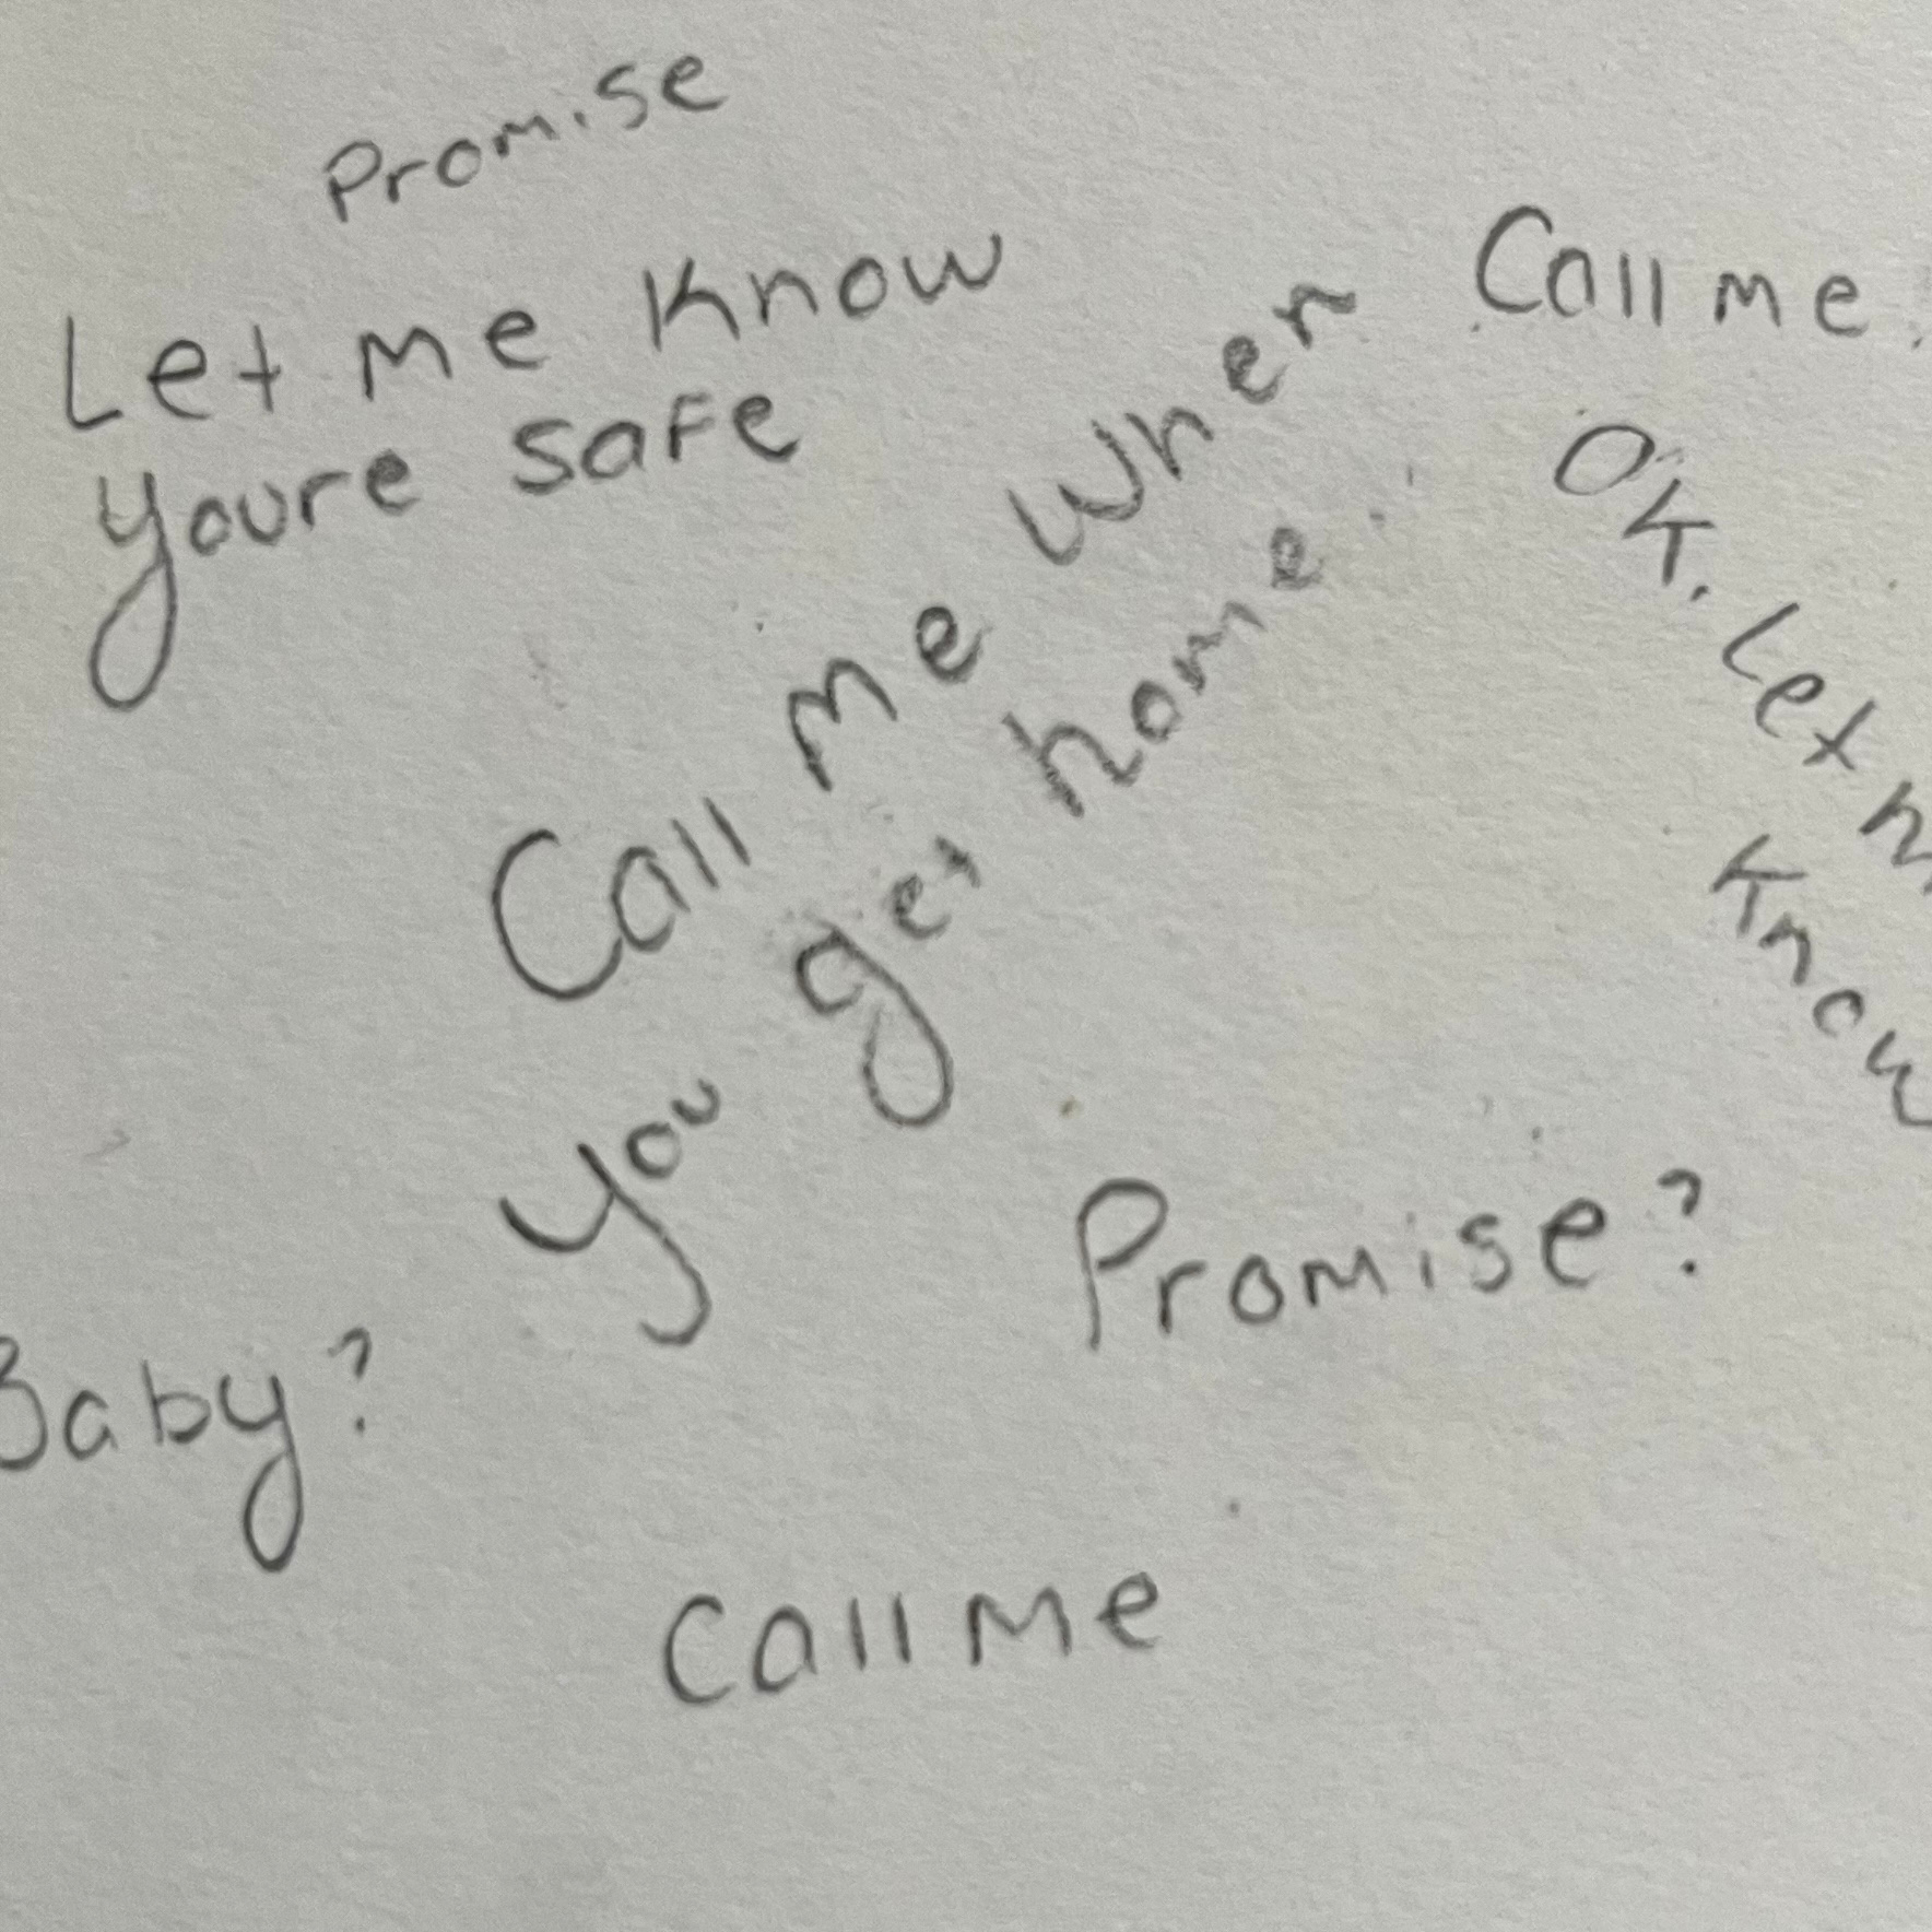 Promise
Let me know
youre safe
Call me when
you get home.
Call me.
OK. Let m
Know
Promise?
Baby?
Call me